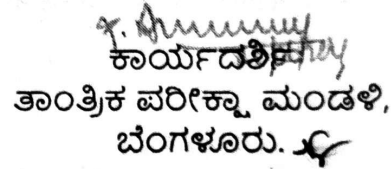 ಕಾರ್ಯದರ್ಶಿ
ತಾಂತ್ರಿಕ ಪರೀಕ್ಷಾ ಮಂಡಳಿ,
ಬೆಂಗಳೂರು.